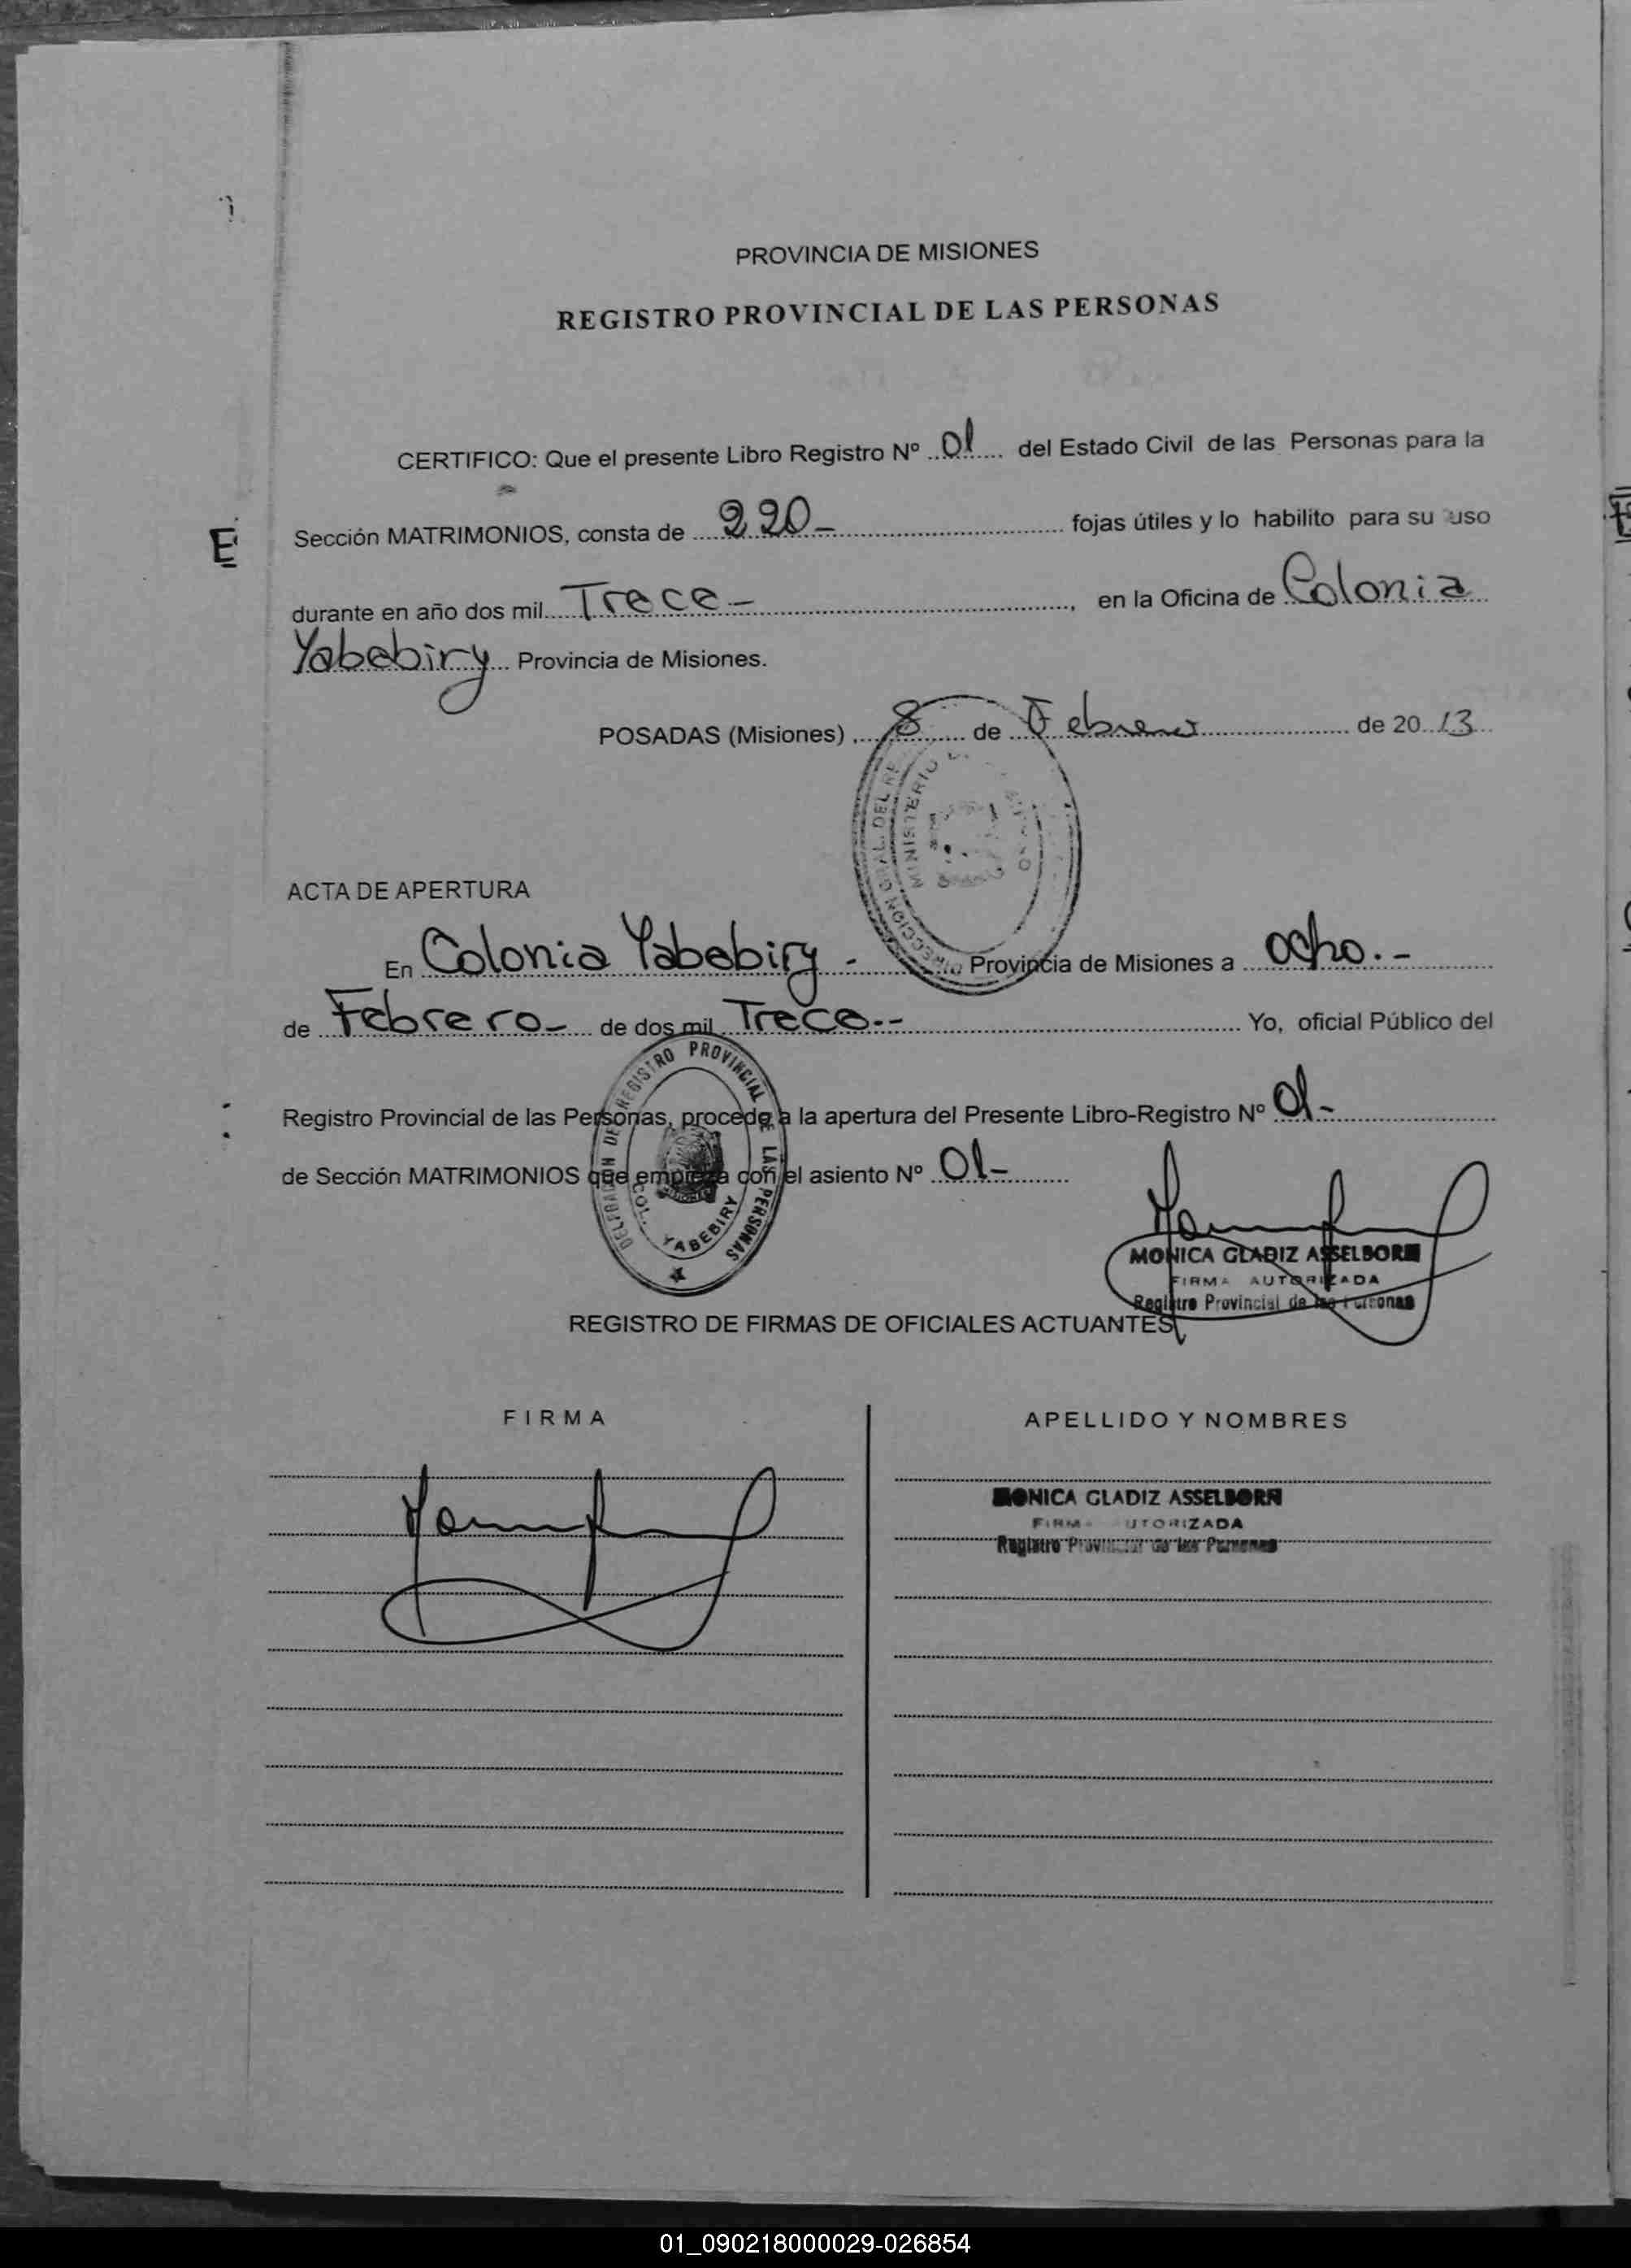 PROVINCIA DE MISIONES
REGISTRO PROVINCIAL DE LAS PERSONAS
CERTIFICO: Que el presente Libro Registro Nº 01 del Estado Civil de las Personas para la
E Sección MATRIMONIOS, consta de 220- fojas útiles y lo habilito para su uso
durante en año dos mil Trece-, en la Oficina de Colonia
Yabebiry Provincia de Misiones.
POSADAS (Misiones), 8 de Febrero de 2013
DIRECCION GRAL. DEL
MINISTERIO
ACTA DE APERTURA
En Colonia Yabebiry - Provincia de Misiones a ocho.-
de Febrero- de dos mil Trece.- Yo, oficial Público del
Registro Provincial de las Personas, procedo a la apertura del Presente Libro-Registro Nº 01-
de Sección MATRIMONIOS que empieza con el asiento Nº 01-
REGISTRO PROVINCIAL DE LAS PERSONAS
COL. YABEBIRY
MONICA GLADIZ ASSELBORN
FIRMA AUTORIZADA
Registro Provincial de las Personas
REGISTRO DE FIRMAS DE OFICIALES ACTUANTES
FIRMA APELLIDO Y NOMBRES
MONICA GLADIZ ASSELBORN
FIRMA AUTORIZADA
Registro Provincial de las Personas
01_090218000029-026854